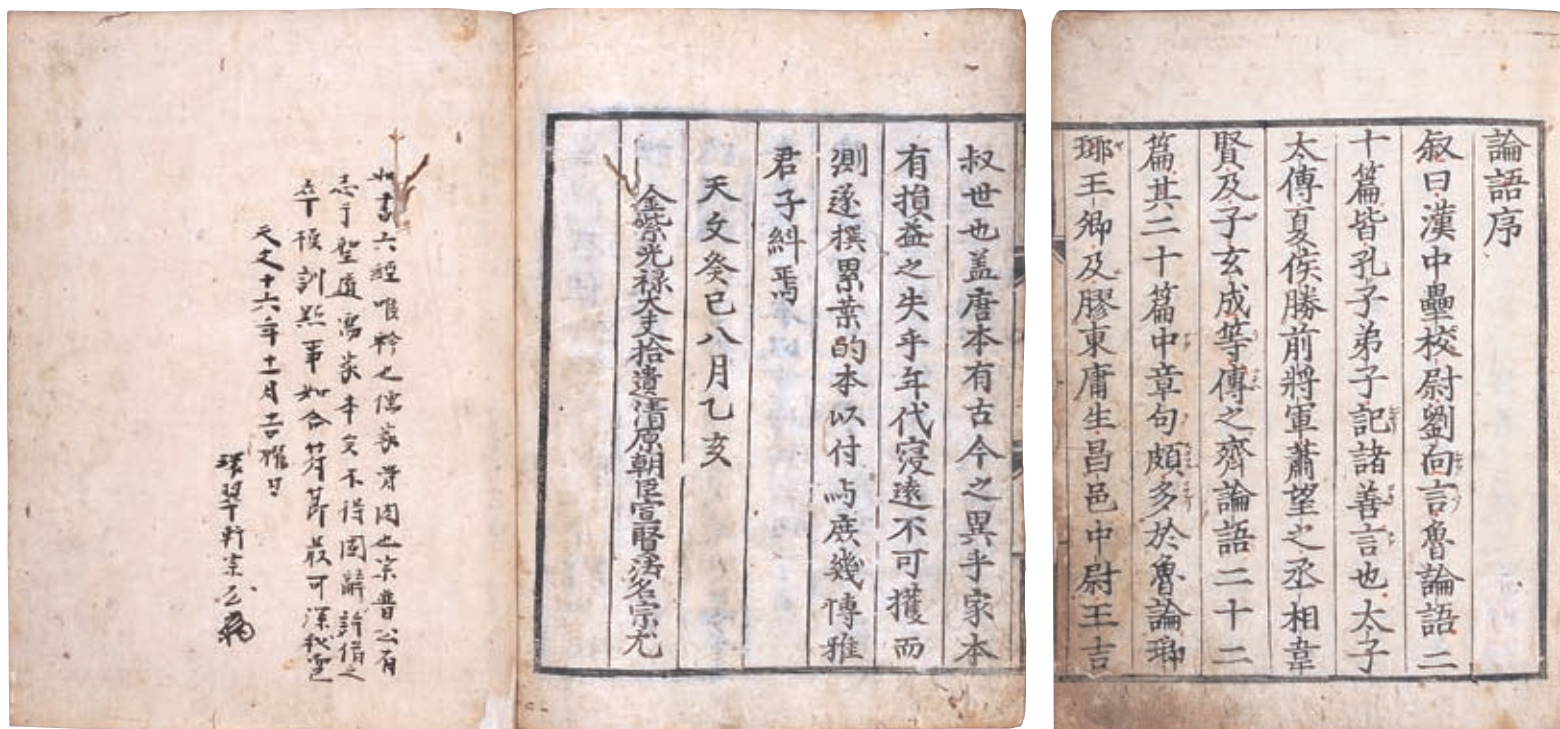 論語序
叙曰漢中壘校尉劉向言魯論語二
十篇皆孔子弟子記諸善言也太子
太傅夏侯勝前將軍蕭望之丞相韋
賢及子玄成等傳之齊論語二十二
篇其二十篇中章句頗多於魯論瑯
瑘王卿及膠東庸生昌邑中尉王吉
叔世也盖唐本有古今之異乎家本
有損益之失乎年代寝遠不可擭而
測遂撰累葉的本以付与庶幾博雅
君子糾焉
天文癸巳八月乙亥
金紫光禄大夫拾遺清原朝臣宣賢法名宗尤
六經唯幹之儒家
志于聖道寫家本
訓點事如合符節嚴可深秘
天文十六年十一月吉曜日
環翠軒宗尤